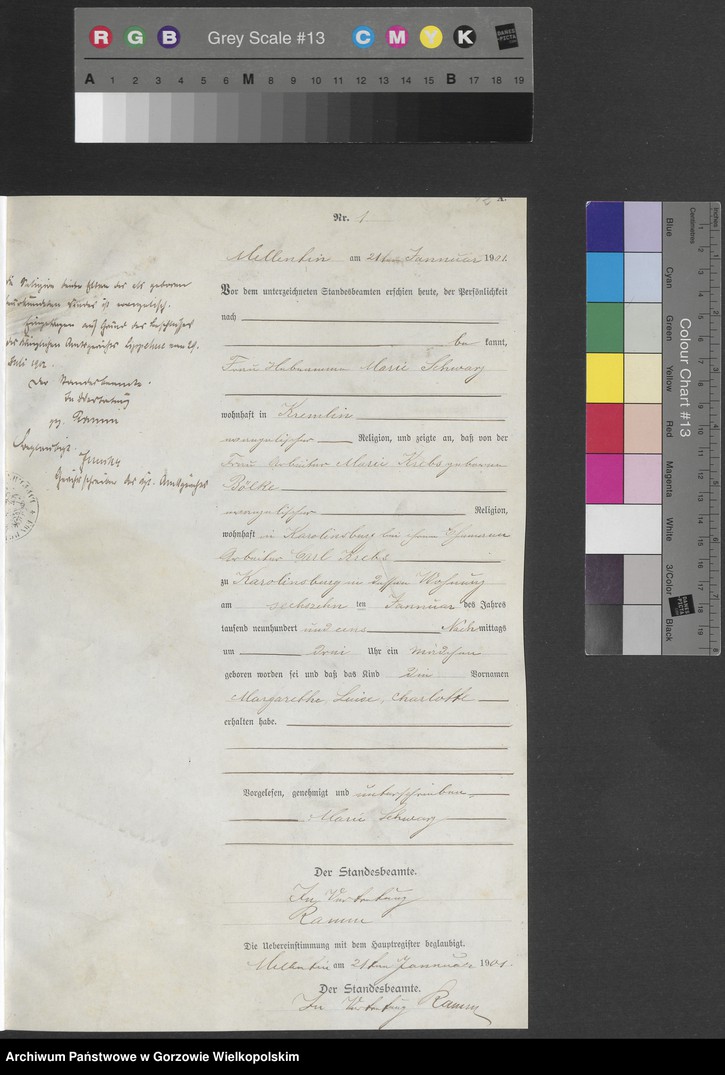 R G B Grey Scale #13 C M Y K DANES PICTA
A 1 2 3 4 5 6 M 8 9 10 11 12 13 14 15 B 17 18 19
Nr. 1
Mellentin am 21ten Jannuar 1901.
Vor dem unterzeichneten Standesbeamten erschien heute, der Persönlichkeit
nach
be kannt,
Frau Hebeamme Marie Schwarz
wohnhaft in Kremlin
evangelischer Religion, und zeigte an, daß von der
Frau Arbeiter Marie Krebs geborene
Bölke
evangelischer Religion,
wohnhaft in Karolinsburg bei ihrem Ehemann
Arbeiter Carl Krebs
zu Karolinsburg in dessen Wohnung
am sechszehn ten Jannuar des Jahres
tausend neunhundert und eins Nach mittags
um Drei Uhr ein Mädchen
geboren worden sei und daß das Kind Die Vornamen
Margarethe, Luise, Charlotte
erhalten habe.
Vorgelesen, genehmigt und unterschrieben
Marie Schwarz
Der Standesbeamte.
In Vertretung
Ramm
Die Uebereinstimmung mit dem Hauptregister beglaubigt.
Mellentin am 21ten Jannuar 1901.
Der Standesbeamte.
In Vertretung Ramm
Religion beider Eltern des als geboren
Kindes ist evangelisch.
Eingetragen auf Grund des Beschlusses
des Königlichen Amtsgerichts Lippehne vom
Juli
Der Standesbeamte.
In Vertretung
gez. Ramm
Beglaubigt
Gerichtsschreiber des Kgl. Amtsgerichts
Colour Chart #13
Centimetres Inches
Blue Cyan Green Yellow Red Magenta White 3/Color Black
DANES PICTA
1 2 3 4 5 6 7 8 9 10 11 12 13 14 15 16 17 18 19
Archiwum Państwowe w Gorzowie Wielkopolskim